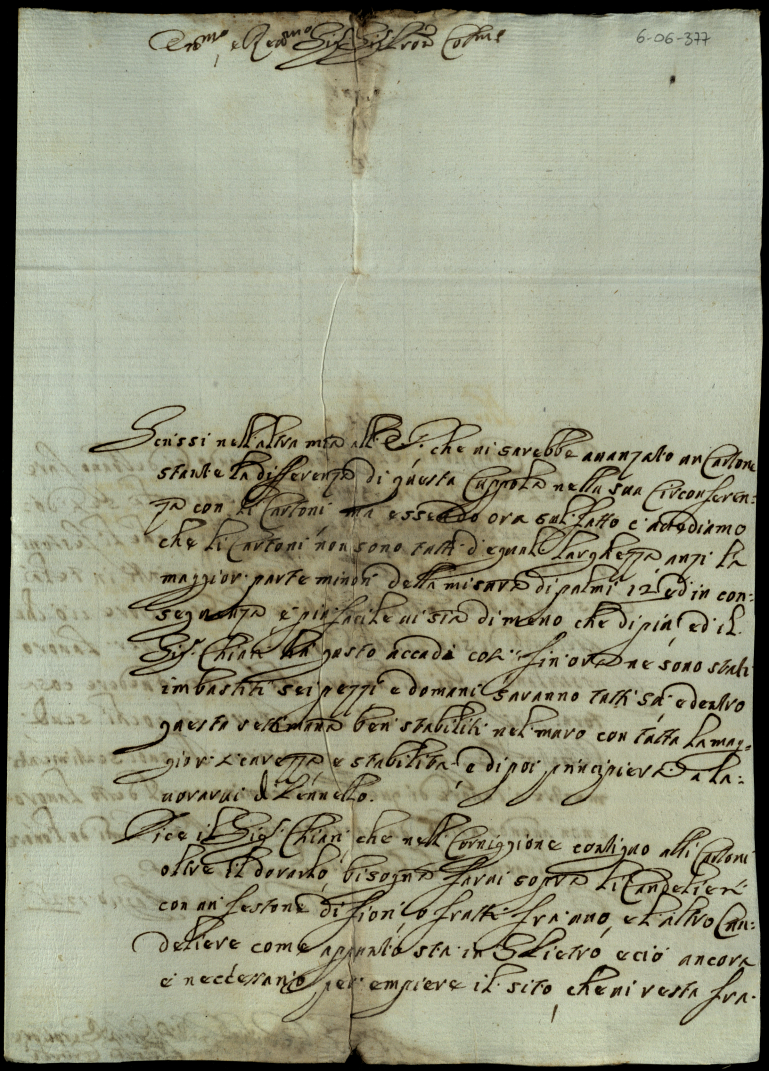 6-06-377
Illmo e Revmo Sig. Sig. Pron Colmo
Scrissi nell'altra mia all' V.S. che vi sarebbe avanzato un Cartone
stante la differenza di questa Cuppola nella sua Circonferen=
za con li Cartoni ma essendo ora sul fatto c'avvediamo
che li Cartoni non sono tutti d'eguale larghezza anzi la
maggior parte minori della misura di palmi 12 ed in con=
seguenza è più facile vi sia di meno che di più ed il
Sig. Chiari ha gusto accada così fin ora ne sono stati
imbastiti sei pezzi e domani saranno tutti sù e dentro
questa settimana ben stabiliti nel muro con tutta la mag=
gior sicurezza e stabilità e di poi principierà a la=
vorarvi di Pennello.
Dice il Sig. Chiari che nell Corniggione contiguo alli Cartoni
oltre il dorarlo bisogna farvi sopra li Candelieri
con un festone di fiori o frutti fra uno e l'altro Can=
deliere come appunto sta in S. Pietro e ciò ancora
è necessario per empiere il sito che vi resta fra